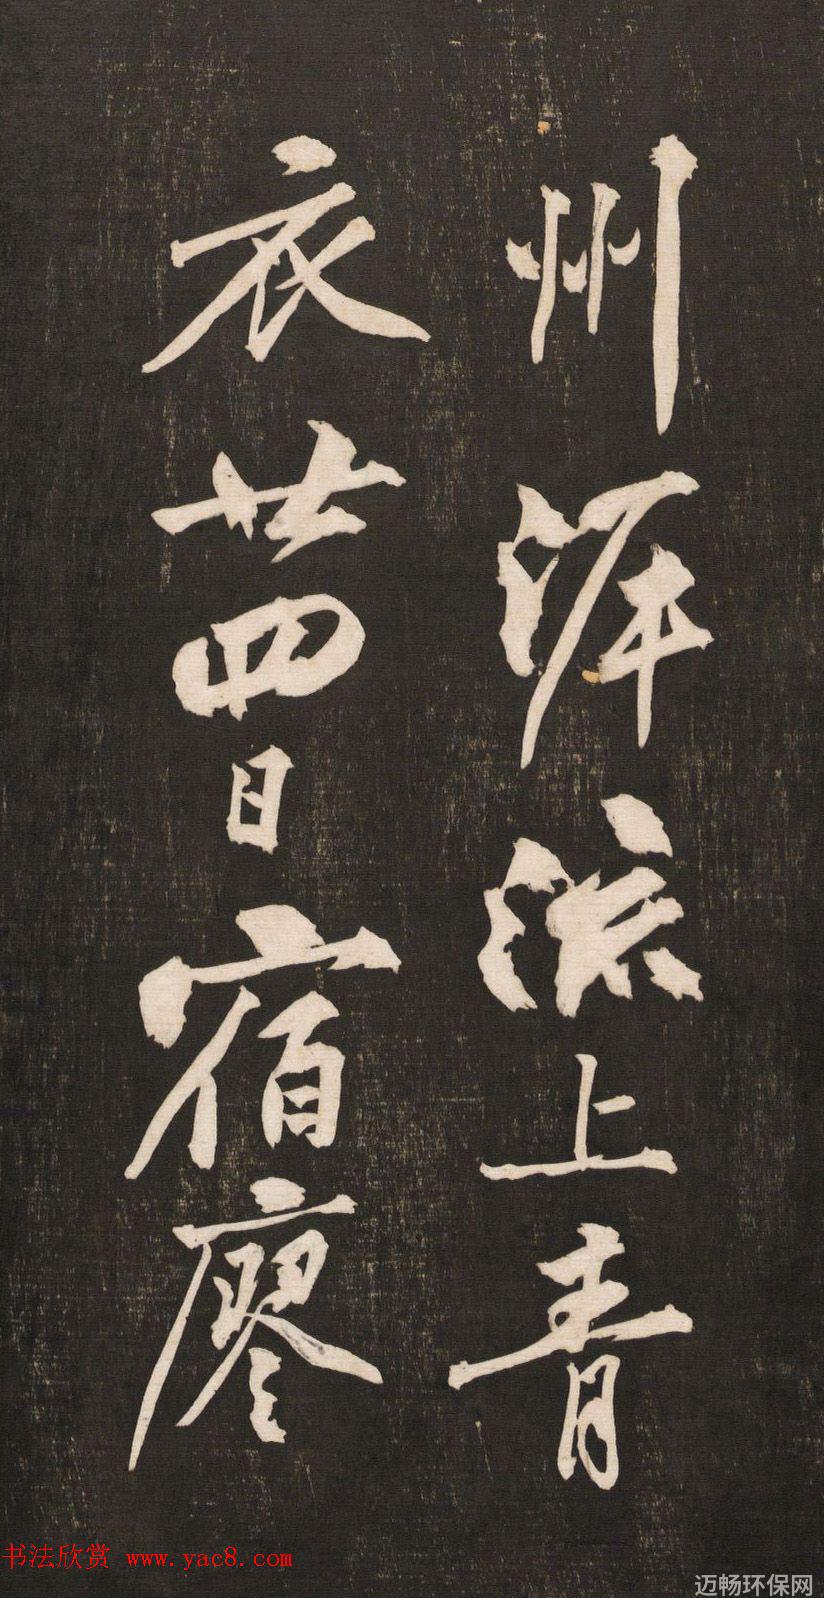 州泝流上青
衣廿四日宿廖
书法欣赏 www.yac8.com
迈畅环保网